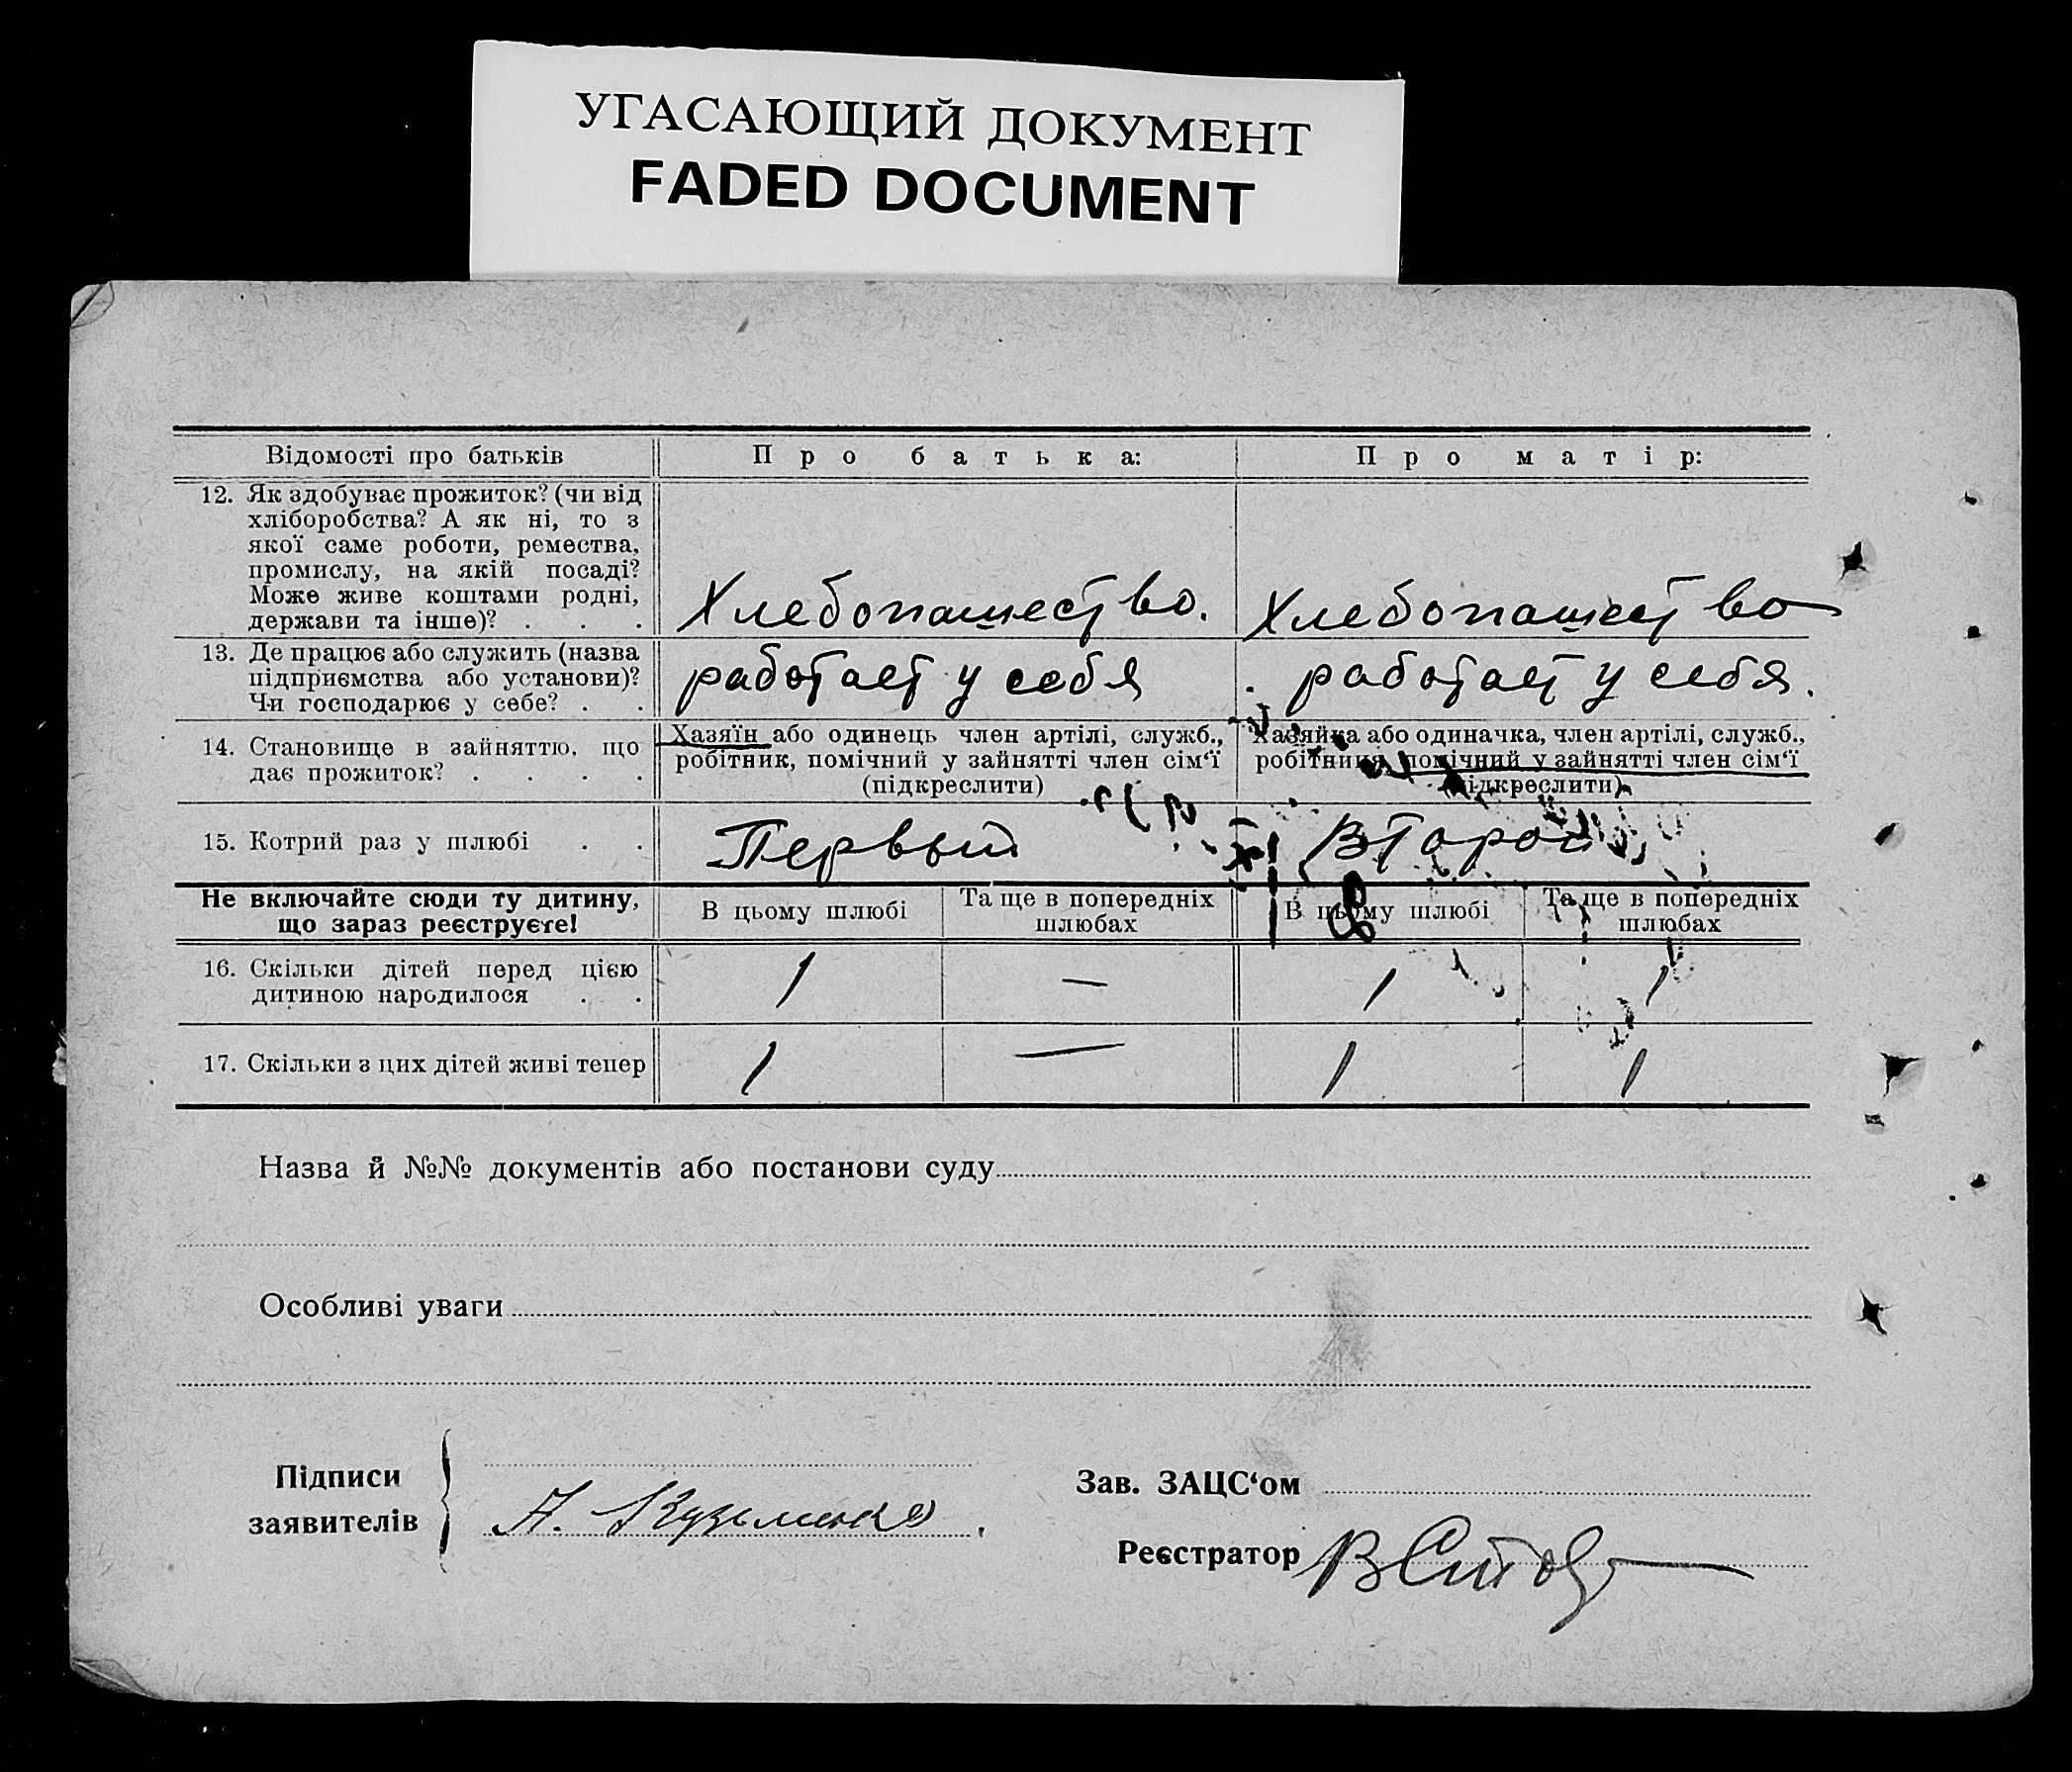 УГАСАЮЩИЙ ДОКУМЕНТ
FADED DOCUMENT
Відомості про батьків
Про батька:
Про матір:
12. Як здобуває прожиток? (чи від
хліборобства? А як ні, то з
якої саме роботи, ремества,
промислу, на якій посаді?
Може живе коштами родні,
держави та інше)? . . .
Хлебопашество.
Хлебопашество
13. Де працює або служить (назва
підприємства або установи)?
Чи господарює у себе? . .
работает у себя
работает у себя.
14. Становище в зайняттю, що
дає прожиток? . . . .
Хазяїн або одинець член артілі, служб.,
робітник, помічний у зайнятті член сім‘ї
(підкреслити)
Хазяйка або одиначка, член артілі, служб.,
робітниця, помічний у зайнятті член сім‘ї
(підкреслити)
15. Котрий раз у шлюбі . .
Первый
Второй
Не включайте сюди ту дитину,
що зараз реєструєте!
В цьому шлюбі
Та ще в попередніх
шлюбах
В цьому шлюбі
Та ще в попередніх
шлюбах
16. Скільки дітей перед цією
дитиною народилося . .
1 — 1 1
17. Скільки з цих дітей живі тепер
1 — 1 1
Назва й №№ документів або постанови суду
Особливі уваги
Підписи
заявителів
А. Кузьменко
Зав. ЗАЦС‘ом
Реєстратор